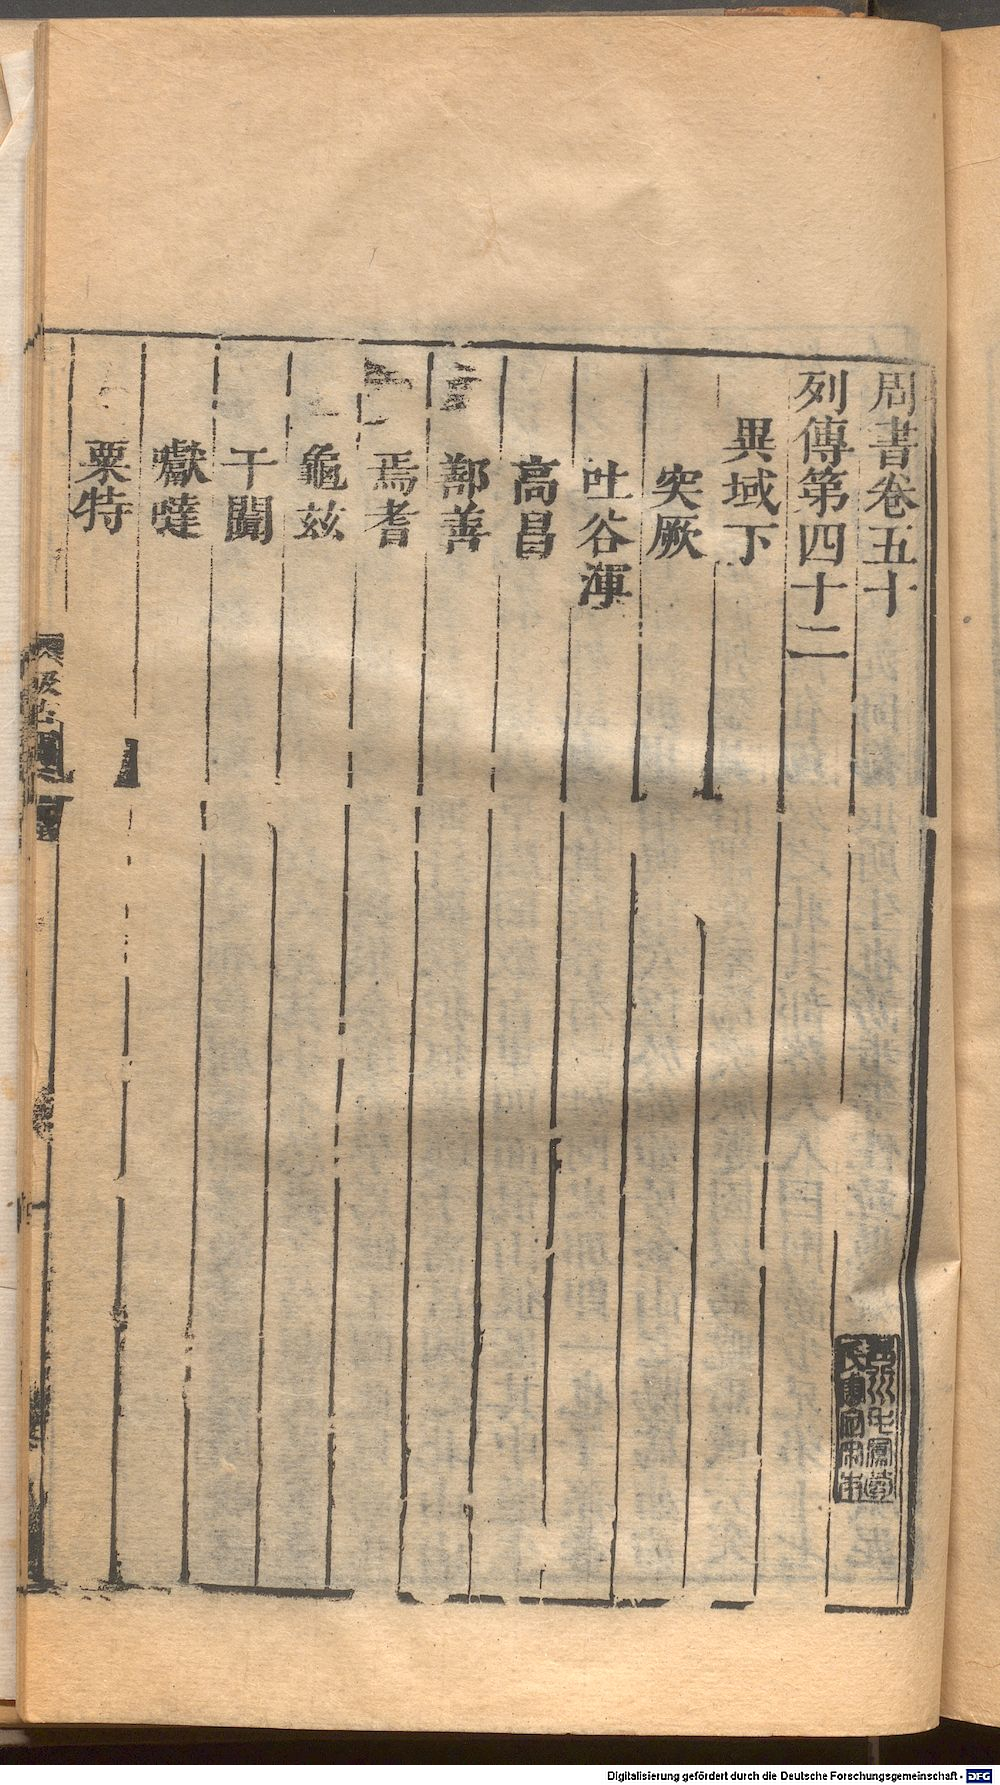 周書卷五十
列傳第四十二
異域下
突厥
吐谷渾
高昌
鄯善
焉耆
龜玆
于闐
嚈噠
粟特
Digitalisierung gefördert durch die Deutsche Forschungsgemeinschaft - DFG